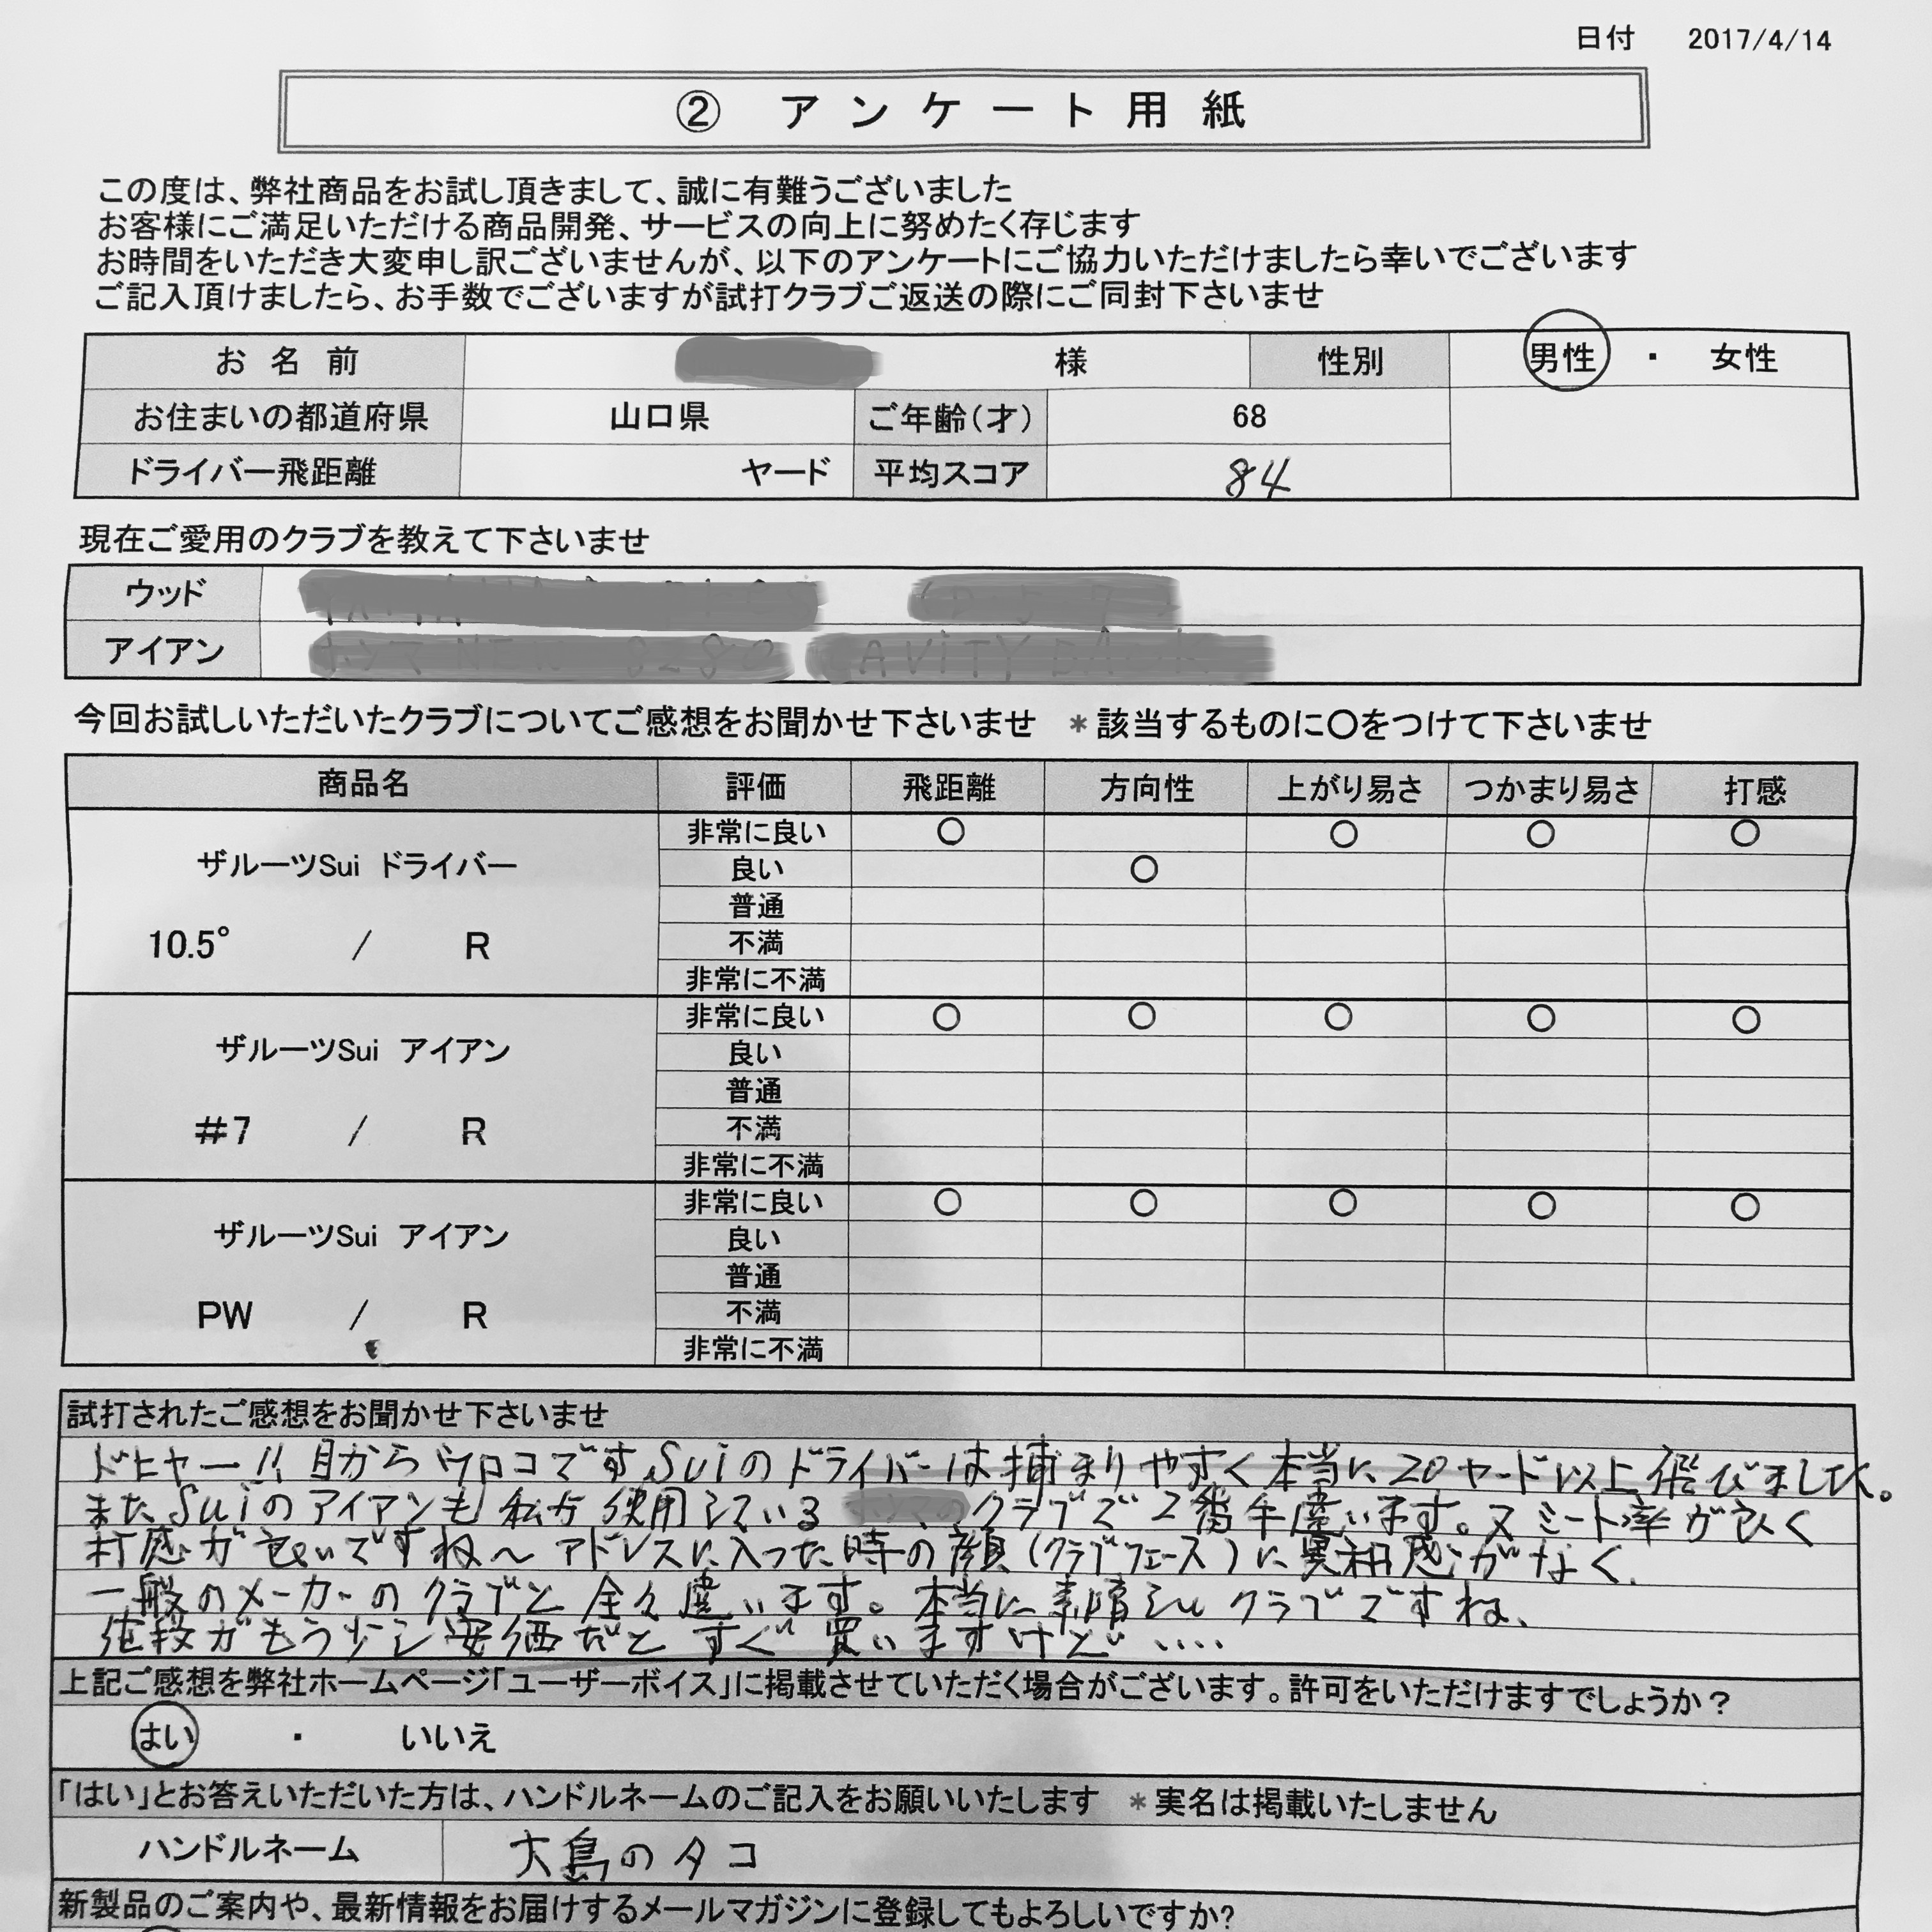 日付 2017/4/14
② アンケート用紙
この度は、弊社商品をお試し頂きまして、誠に有難うございました
お客様にご満足いただける商品開発、サービスの向上に努めたく存じます
お時間をいただき大変申し訳ございませんが、以下のアンケートにご協力いただけましたら幸いでございます
ご記入頂けましたら、お手数でございますが試打クラブご返送の際にご同封下さいませ
お名前 様 性別 男性 ・ 女性
お住まいの都道府県 山口県 ご年齢(才) 68
ドライバー飛距離 ヤード 平均スコア 84
現在ご愛用のクラブを教えて下さいませ
ウッド
アイアン CAVITY
今回お試しいただいたクラブについてご感想をお聞かせ下さいませ *該当するものに〇をつけて下さいませ
商品名 評価 飛距離 方向性 上がり易さ つかまり易さ 打感
ザルーツSui ドライバー
10.5° / R
非常に良い 〇 〇 〇 〇
良い 〇
普通
不満
非常に不満
ザルーツSui アイアン
#7 / R
非常に良い 〇 〇 〇 〇 〇
良い
普通
不満
非常に不満
ザルーツSui アイアン
PW / R
非常に良い 〇 〇 〇 〇 〇
良い
普通
不満
非常に不満
試打されたご感想をお聞かせ下さいませ
ドヒャー!! 目からウロコです Suiのドライバーは捕まりやすく本当に20ヤード以上飛びました。
またSuiのアイアンも私が使用している クラブで2番手違います。又ミート率が良く
打感が良いですね〜アドレスに入った時の顔(クラブフェース)に異和感がなく、
一般のメーカーのクラブと全々違います。本当に素晴しいクラブですね、
値段がもう少し安価だとすぐ買いますけど‥‥
上記ご感想を弊社ホームページ「ユーザーボイス」に掲載させていただく場合がございます。許可をいただけますでしょうか？
はい ・ いいえ
「はい」とお答えいただいた方は、ハンドルネームのご記入をお願いいたします *実名は掲載いたしません
ハンドルネーム 大島のタコ
新製品のご案内や、最新情報をお届けするメールマガジンに登録してもよろしいですか?